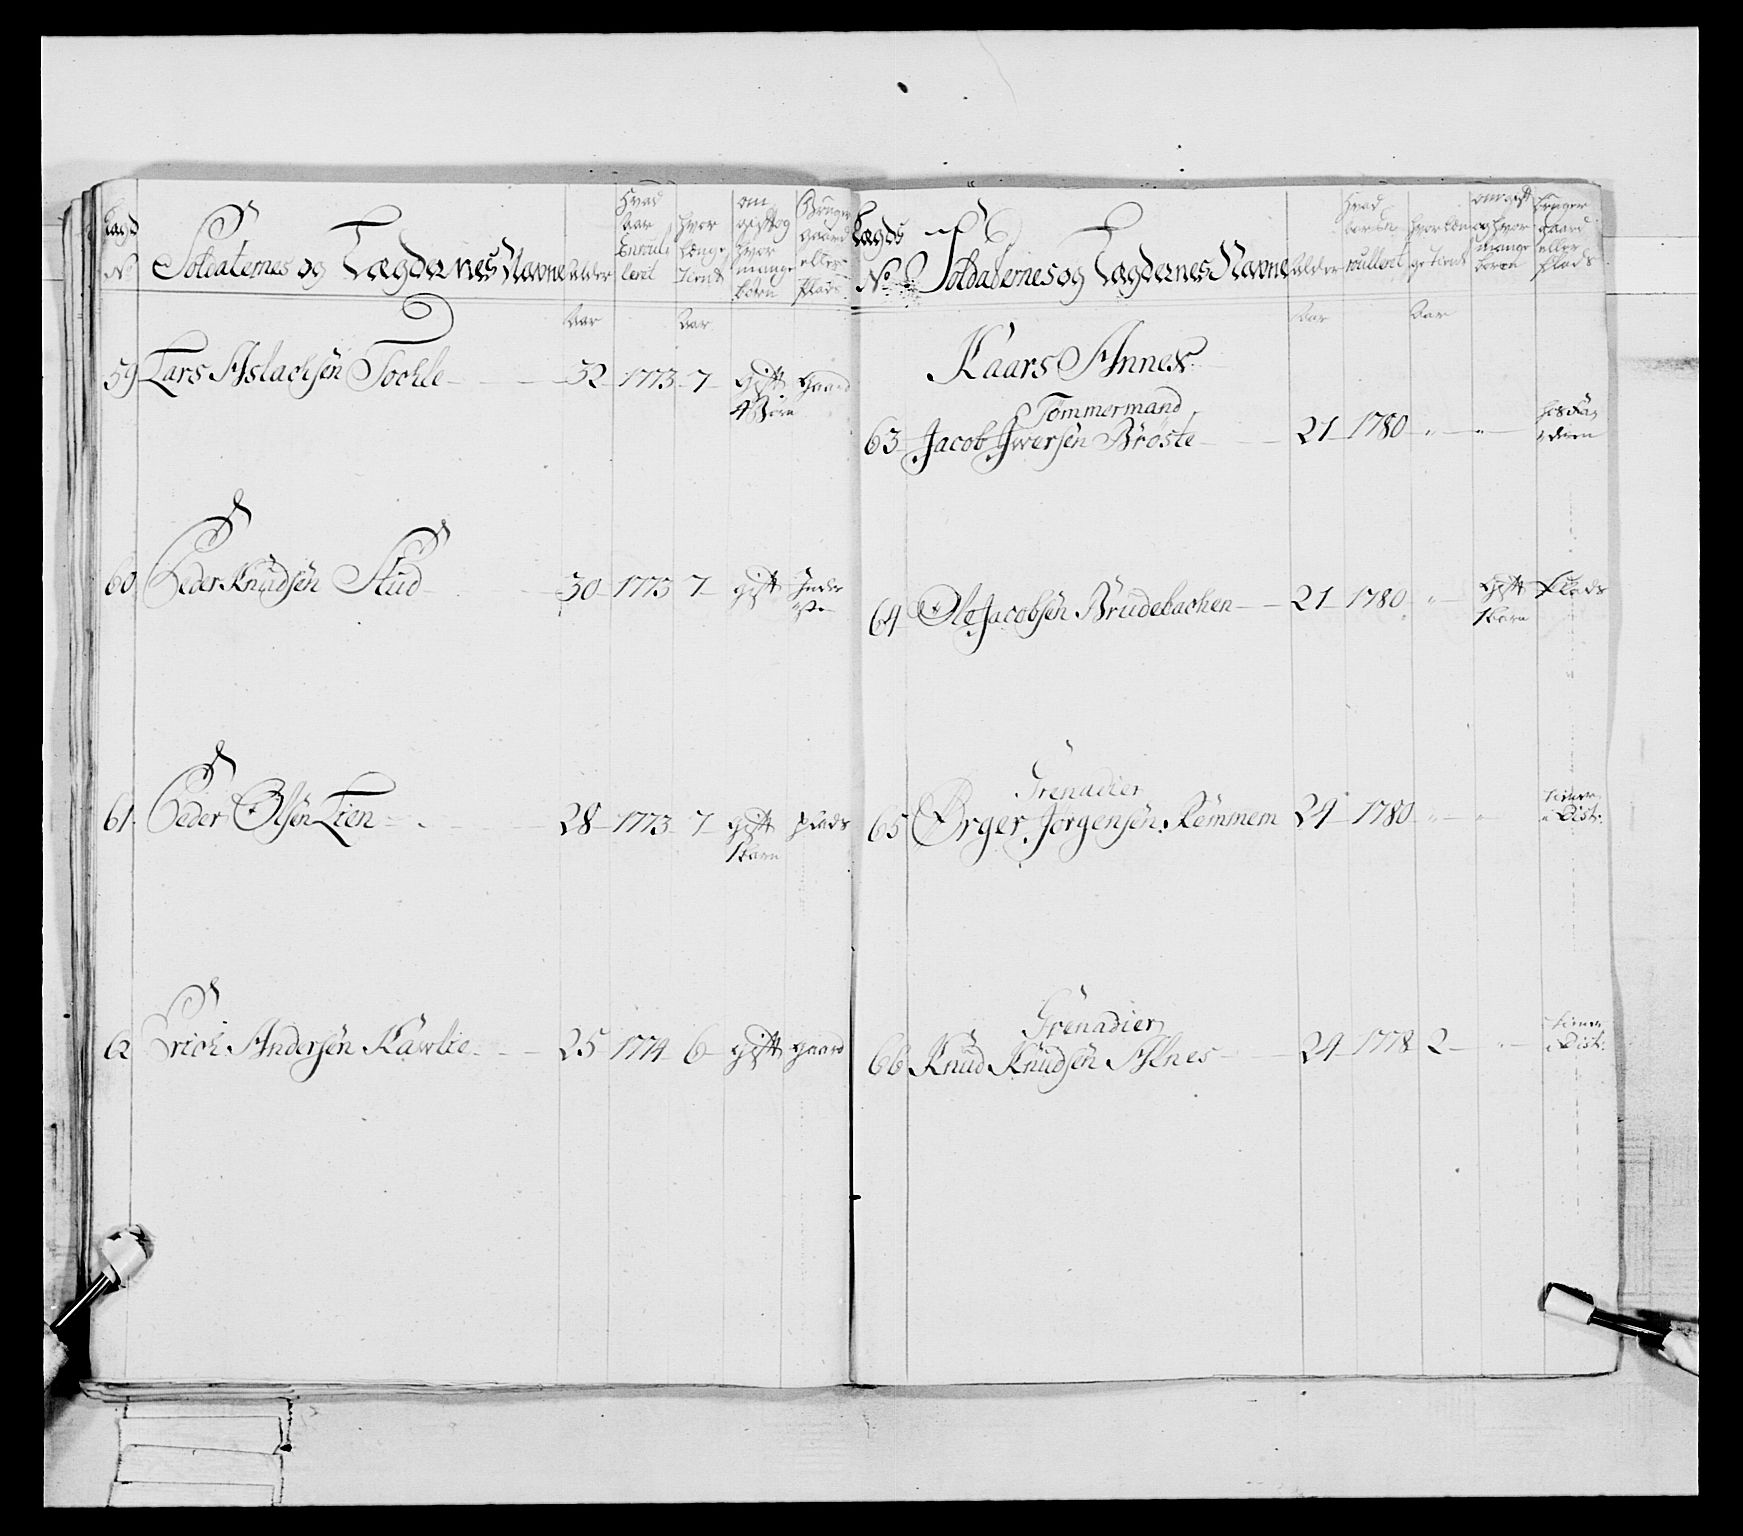 Lægd
No
Soldaternes og Lægdernes Navne
Alder
Hvad
Aar
Enroul
leret
hvor
længe
tient
om
gift og
hvor
mange
børn
Bruger
gaard
eller
Plads
Aar
Aar
59 Lars Aslachsen Tochle 32 1773 7 gift Gaard
4 Børn
60 Peder Knudsen Stud 30 1773 7 gift Inder
ste
61 Peder Olsen Lien 28 1773 7 gift plads
1 barn
62 Erich Andersen Kawlie 25 1774 6 gift gaard
Lægds
No
Soldaternes og Lægdernes Navne
Alder
Hvad
Aar En
roulleret
hvor læn
ge tient
om gift
og hvor
mange
børn
bruger
gaard
eller
Plads
Aar
Aar
Kaars Annex
Tømmermand
63 Jacob Iwersen Brøste 21 1780 " " hos
64 Ole Jacobsen Brudebachen 21 1780 " Gift Plads
1 barn
Grenadier
65 Ørger Jørgensen Remmem 24 1780 " " tiener
i Dist:
Grenadier
66 Knud Knudsen Alnes 24 1778 2 " tiener
i Dist: